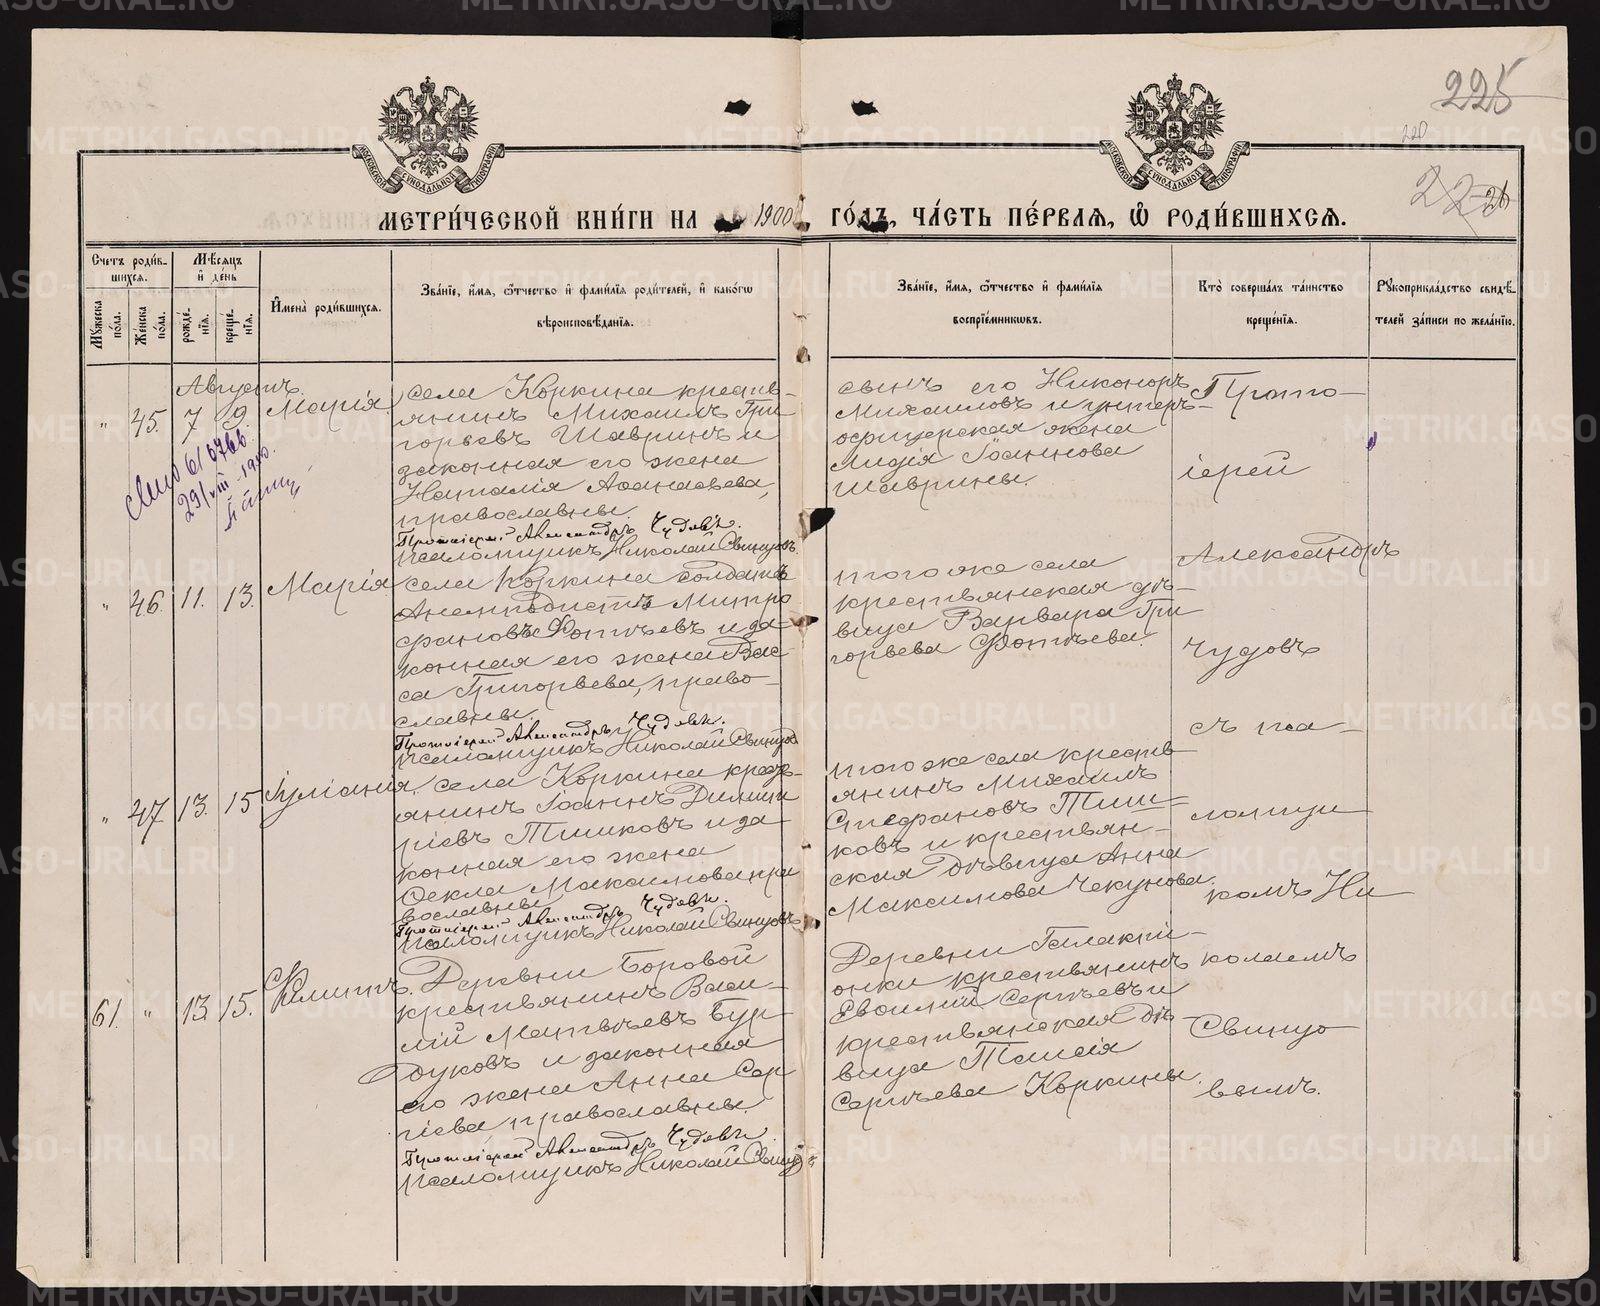 225
220
МЕТРИ́ЧЕСКОЙ КНИ́ГИ НА 1900 ГО́ДЪ, ЧА́СТЬ ПЕ́РВАЯ, Ѡ҆ РОДИ́ВШИХСЯ.
Счетъ роди́вшихся.
Мꙋ́жеска по́ла.
Же́нска по́ла.
Мѣ́сяцъ и҆ де́нь
рожде́нїѧ.
креще́нїѧ.
И҆мена̀ роди́вшихсѧ.
Зва́нїе, и҆́мѧ, ѻ҆́тчество и҆ фами́лїѧ роди́телей, и҆ како́гѡ вѣроисповѣ́данїѧ.
Зва́нїе, и҆́мѧ, ѻ҆́тчество и҆ фами́лїѧ воспрїе́мникѡвъ.
Кто̀ соверша́лъ та́инство креще́нїѧ.
Рꙋкоприкла́дство свидѣ́телей за́писи по жела́нїю.
Августъ.
„ 45. 7 9 Марія.
села Коркина кресть-
янинъ Михаилъ Гри
горьевъ Шавринъ и
законная его жена
Наталія Аѳанасьева,
православны.
Протоіерей Александръ Чудовъ.
псаломщикъ Николай Свинцовъ.
сынъ его Никоноръ
Михаиловъ и унтеръ-
офицерская жена
Лидія Іоаннова
Шаврины.
29/VIII-1950.
„ 46. 11. 13. Марія
села Коркина солдатъ
Анемподистъ Митро
фановъ Фотѣевъ и за-
конная его жена Вас-
са Григорьева, право-
славны.
Протоіерей Александръ Чудовъ.
псаломщикъ Николай Свинцовъ
того же села
крестьянская дѣ-
вица Варвара Гри
горьева Фотѣева.
„ 47 13. 15 Іуліанія.
села Коркина кресть-
янинъ Іоаннъ Димит
ріевъ Тишковъ и за
конная его жена
Ѳекла Максимова пра
вославны
Протоіерей Александръ Чудовъ.
псаломщикъ Николай Свинцовъ
того же села крестья
янинъ Михаилъ
Стефановъ Тиш-
ковъ и крестьян-
ская дѣвица Анна
Максимова Чекунова.
61. „ 13. 15.
Деревни Боровой
крестьянинъ Васи-
лій Матвѣевъ Бур-
дуковъ и законная
его жена Анна Сер
гіева, православны.
Протоіерей Александръ Чудовъ.
псаломщикъ Николай Свинцовъ
Деревни Галакті-
онки крестьянинъ
Сергѣевъ и
крестьянская дѣ-
вица Таисія
Сергѣева Коркины.
Прото-
іерей
Александръ
Чудовъ
съ пса-
ломщи
комъ Ни
колаемъ
Свинцо
вымъ.
METRIKI.GASO-URAL.RU